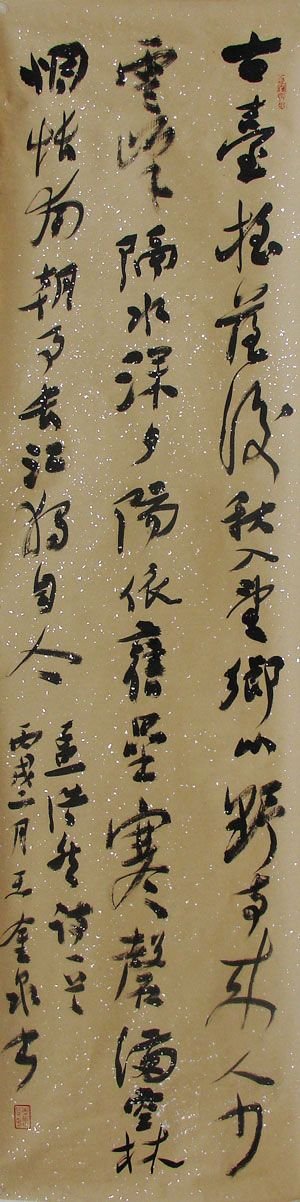 古臺摇落後秋入望鄉心野寺來人少
雲峰隔水深夕陽依舊壘寒磬滿空林
惆悵南朝事長江獨自今
孟浩然詩一首
丙戌二月王泉书